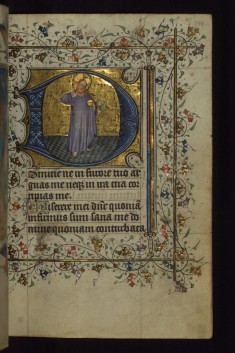 Domine ne in furore tuo ar
guas me neqz in ira tua cor
ripias me.
Miserere mei dñe quoniã
infirmus sum sana me do
mine quoniam conturbata